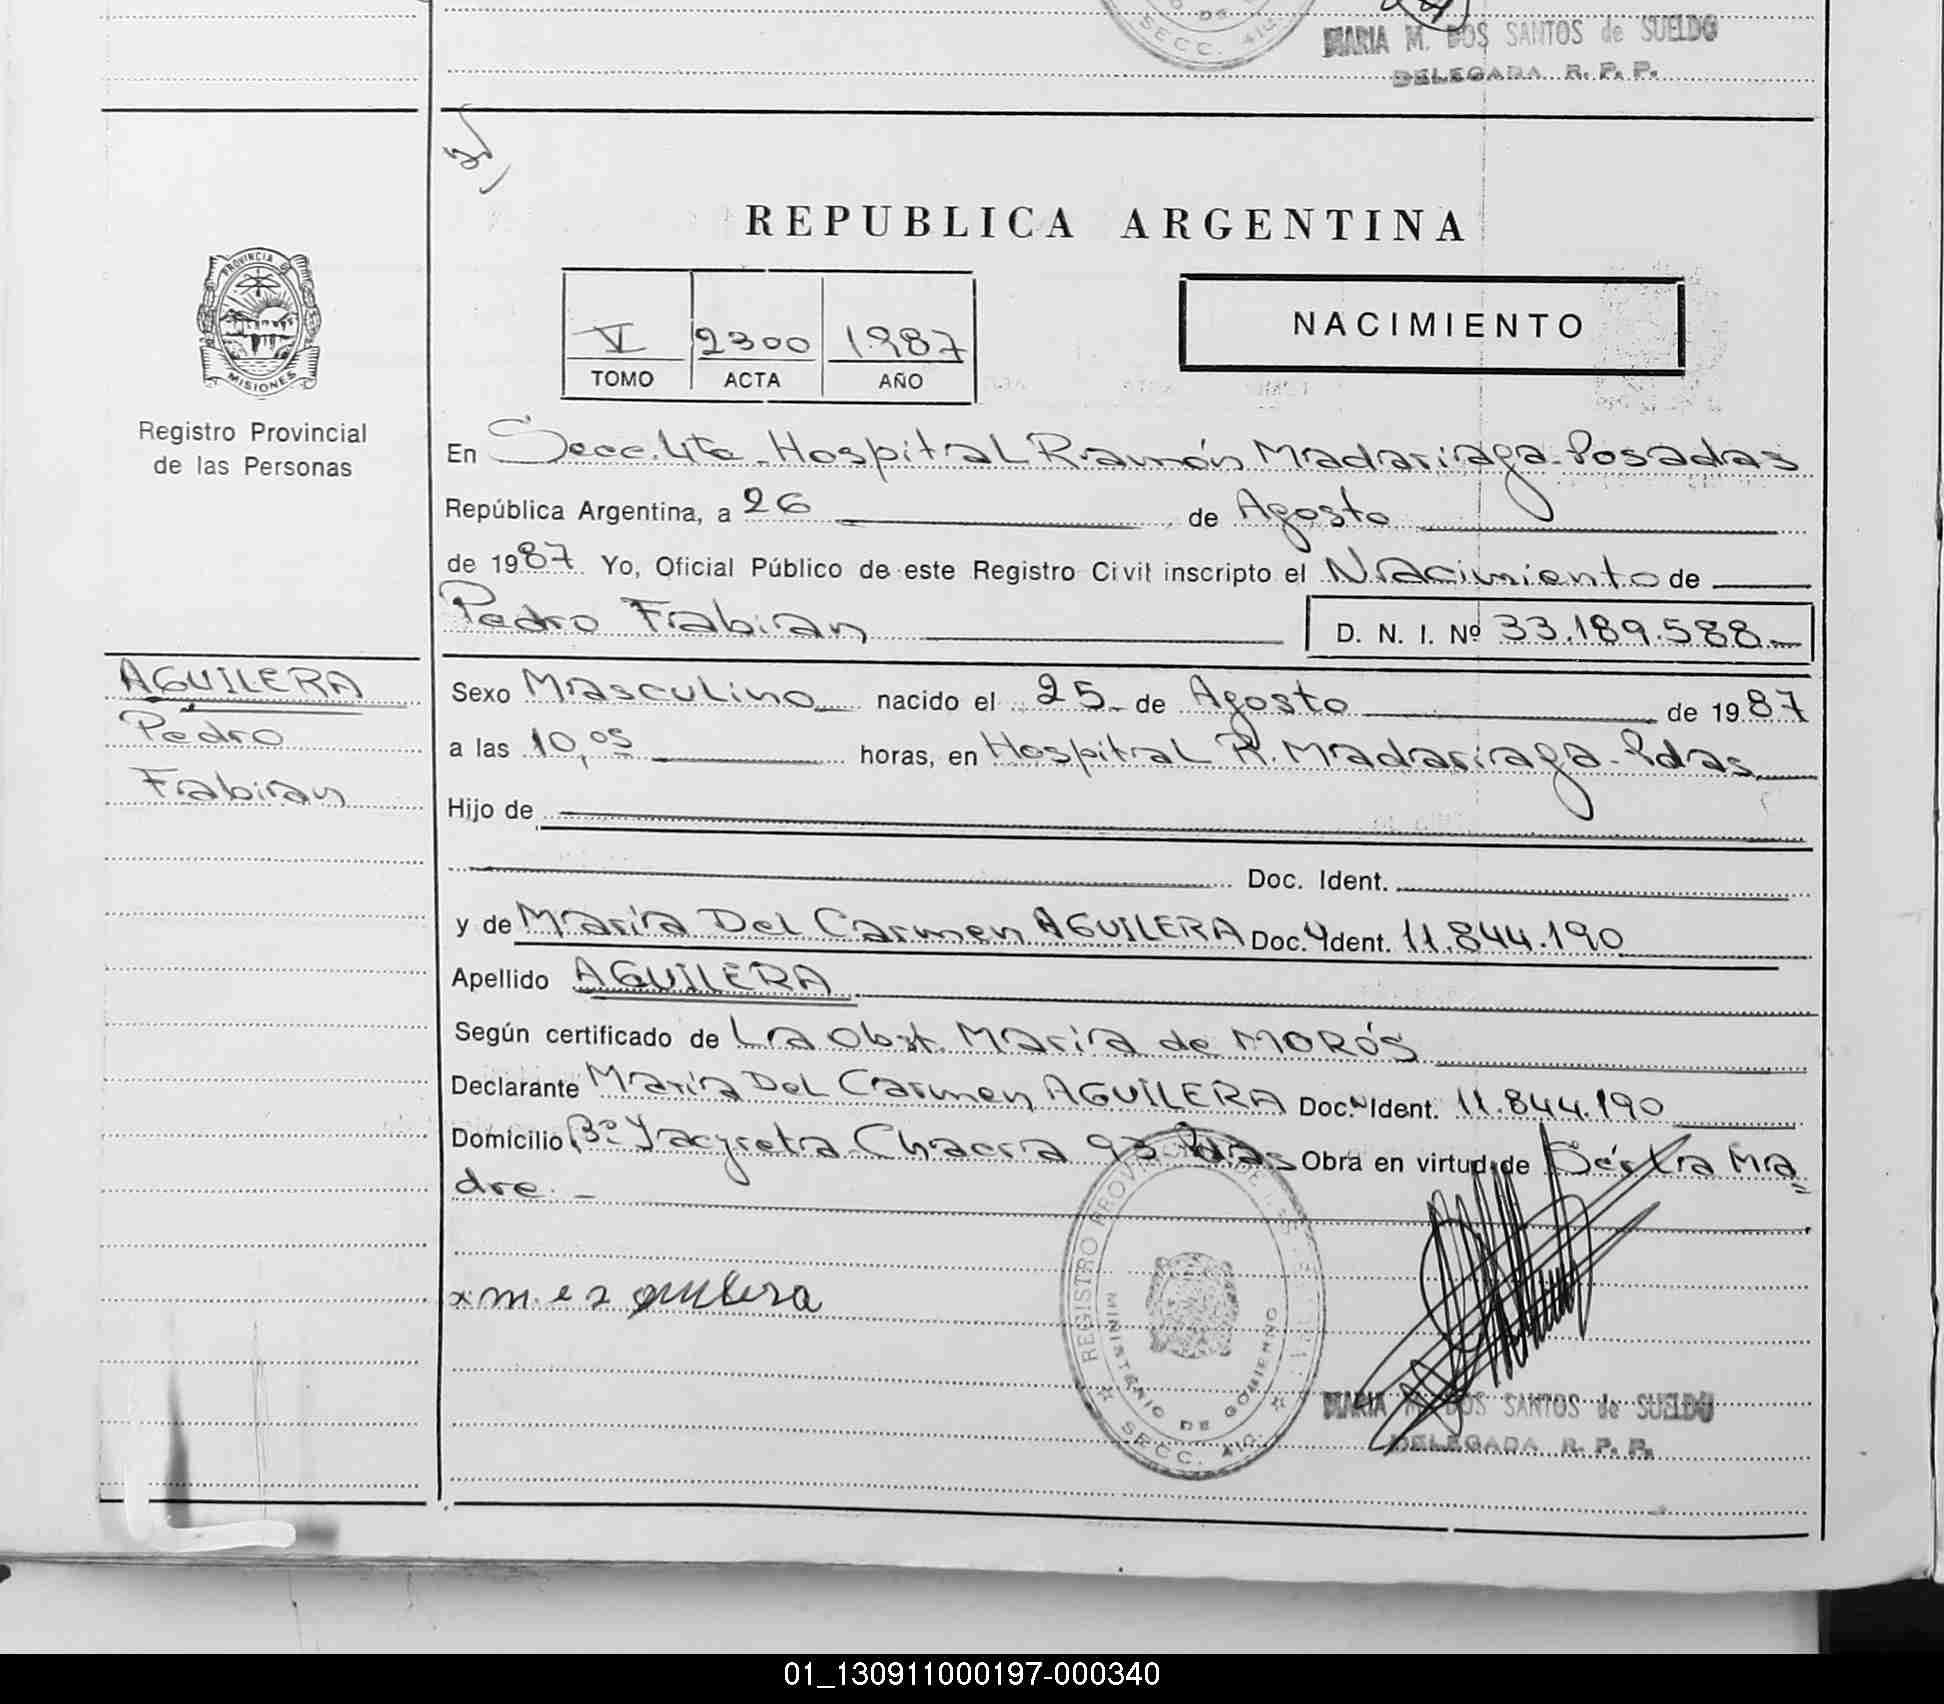 SECC. 4ta.
MARIA M. DOS SANTOS de SUELDO
DELEGADA R. P. P.
REPUBLICA ARGENTINA
PROVINCIA DE
MISIONES
Registro Provincial
de las Personas
V 2300 1987
TOMO ACTA AÑO
NACIMIENTO
En Secc. 4ta - Hospital Ramón Madariaga - Posadas
República Argentina, a 26 de Agosto
de 1987 Yo, Oficial Público de este Registro Civil inscripto el Nacimiento de
Pedro Fabian D. N. I. Nº 33.189.588.-
AGUILERA
Pedro
Fabian
Sexo Masculino nacido el 25 de Agosto de 1987
a las 10,05 horas, en Hospital R. Madariaga - Pdas
Hijo de
Doc. Ident.
y de María Del Carmen AGUILERA Doc. Ident. 11.844.190
Apellido AGUILERA
Según certificado de La Obst. María de MORÓS
Declarante María Del Carmen AGUILERA Doc. Ident. 11.844.190
Domicilio Bº Yacyreta - Chacra 93 Pdas Obra en virtud de Ser la Ma
dre.-
REGISTRO PROVINCIAL
MINISTERIO DE GOBIERNO
SECC. 4ta.
MARIA M. DOS SANTOS de SUELDO
DELEGADA R. P. P.
01_130911000197-000340